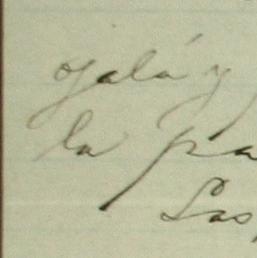 ojalá y
la pa
Los